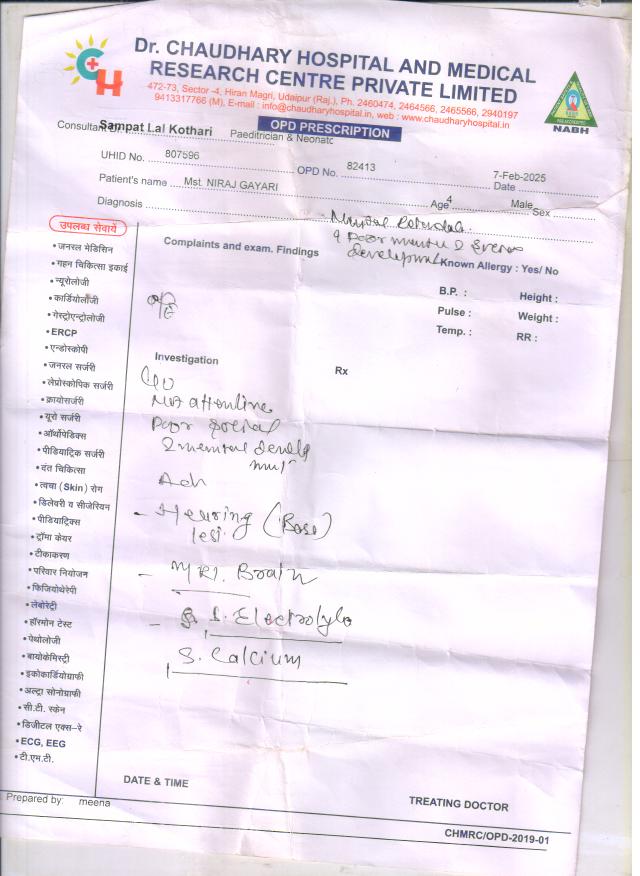 Dr. CHAUDHARY HOSPITAL AND MEDICAL
RESEARCH CENTRE PRIVATE LIMITED
472-73, Sector -4, Hiran Magri, Udaipur (Raj.), Ph. 2460474, 2464566, 2465566, 2940197
9413317766 (M), E-mail : info@chaudharyhospital.in, web : www.chaudharyhospital.in
CH
NABH
OPD PRESCRIPTION
Consultant Sampat Lal Kothari Paeditrician & Neonatc
UHID No. 807596 OPD No. 82413 7-Feb-2025 Date
Patient's name Mst. NIRAJ GAYARI Age 4 Male Sex
Diagnosis
Mental
Poor mental &
development
उपलब्ध सेवायें
Complaints and exam. Findings
Known Allergy : Yes/ No
B.P. : Height :
Pulse : Weight :
Temp. : RR :
• जनरल मेडिसिन
• गहन चिकित्सा इकाई
• न्यूरोलॉजी
• कार्डियोलॉजी
• गेस्ट्रोएन्ट्रोलॉजी
• ERCP
• एन्डोस्कोपी
• जनरल सर्जरी
• लेप्रोस्कोपिक सर्जरी
• क्रायोसर्जरी
• यूरो सर्जरी
• ऑर्थोपेडिक्स
• पीडियाट्रिक सर्जरी
• दंत चिकित्सा
• त्वचा (Skin) रोग
• डिलेवरी व सीजेरियन
• पीडियाट्रिक्स
• ट्रॉमा केयर
• टीकाकरण
• परिवार नियोजन
• फिजियोथेरेपी
• लेबोरेट्री
• हॉरमोन टेस्ट
• पेथोलोजी
• बायोकेमिस्ट्री
• इकोकार्डियोग्राफी
• अल्ट्रा सोनोग्राफी
• सी.टी. स्केन
• डिजीटल एक्स-रे
• ECG, EEG
• टी.एम.टी.
Investigation
Rx
C/o
Not
Poor social
& mental
Adv
- Hearing (Bera)
test
- MRI. Brain
- S. Electrolyte
S. Calcium
DATE & TIME
TREATING DOCTOR
Prepared by: meena
CHMRC/OPD-2019-01